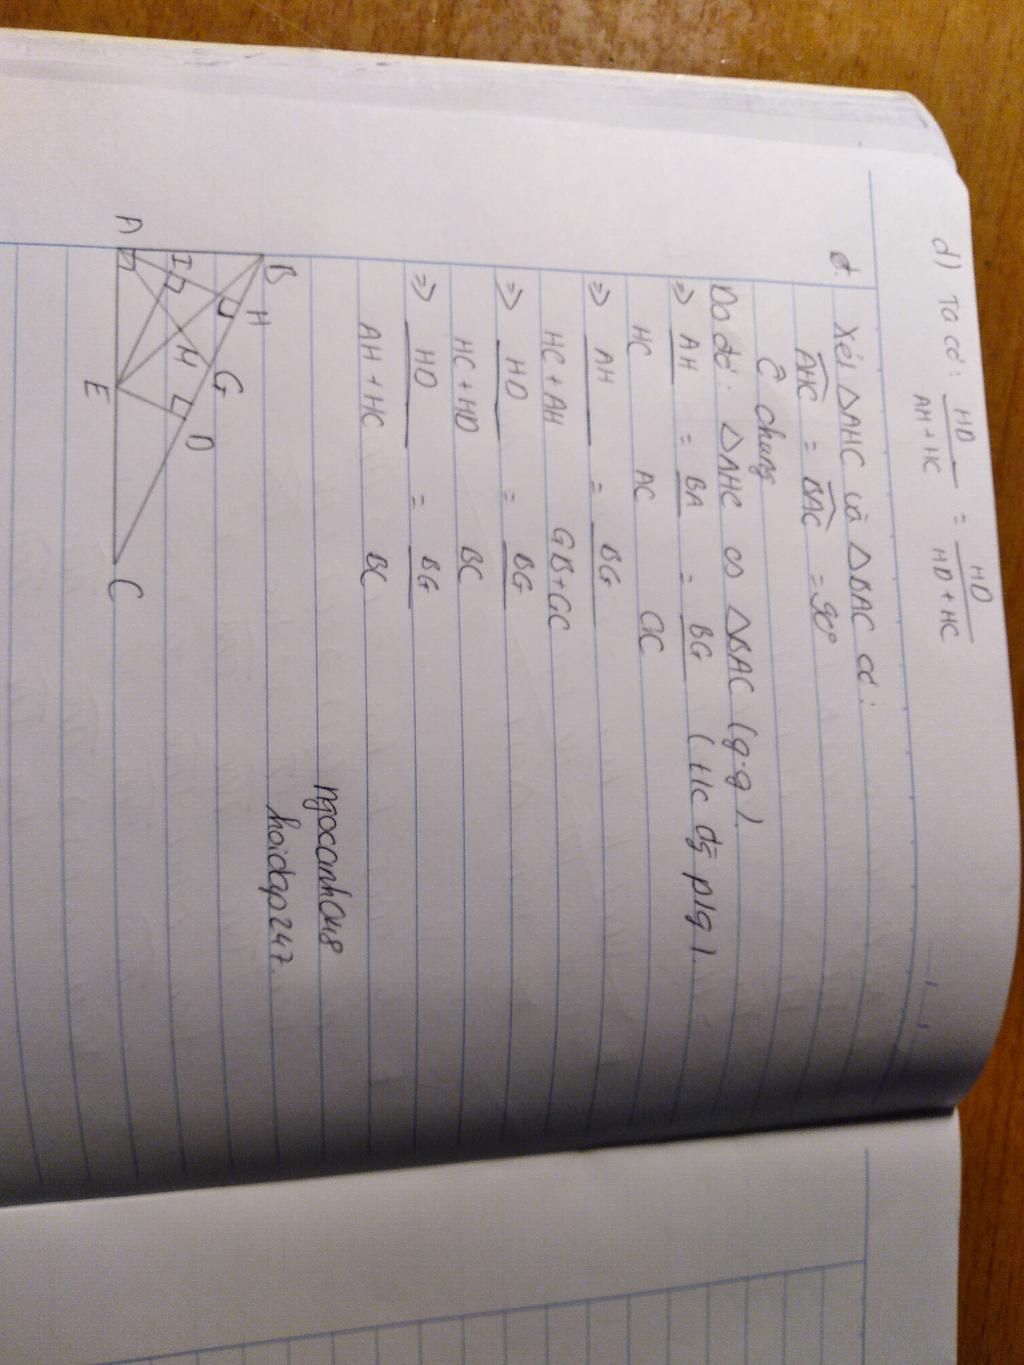 d) Ta có: HD / AH + HC = HD / HD + HC
d. Xét △AHC và △BAC có:
AHC = BAC = 90°
C chung
Do đó: △AHC ∽ △BAC (g.g).
=> AH / HC = BA / AC = BG / GC (t/c đg p/g).
=> AH / HC + AH = BG / GB + GC
=> HD / HC + HD = BG / BC
=> HD / AH + HC = BG / BC
ngocanh048
hoidap247.
B
H
G
D
I
M
A
E
C